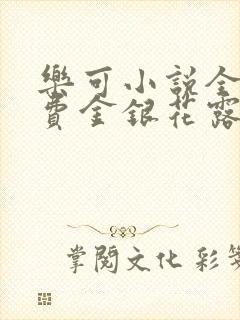 樂可小說全
費金銀花露
掌閱文化 彩